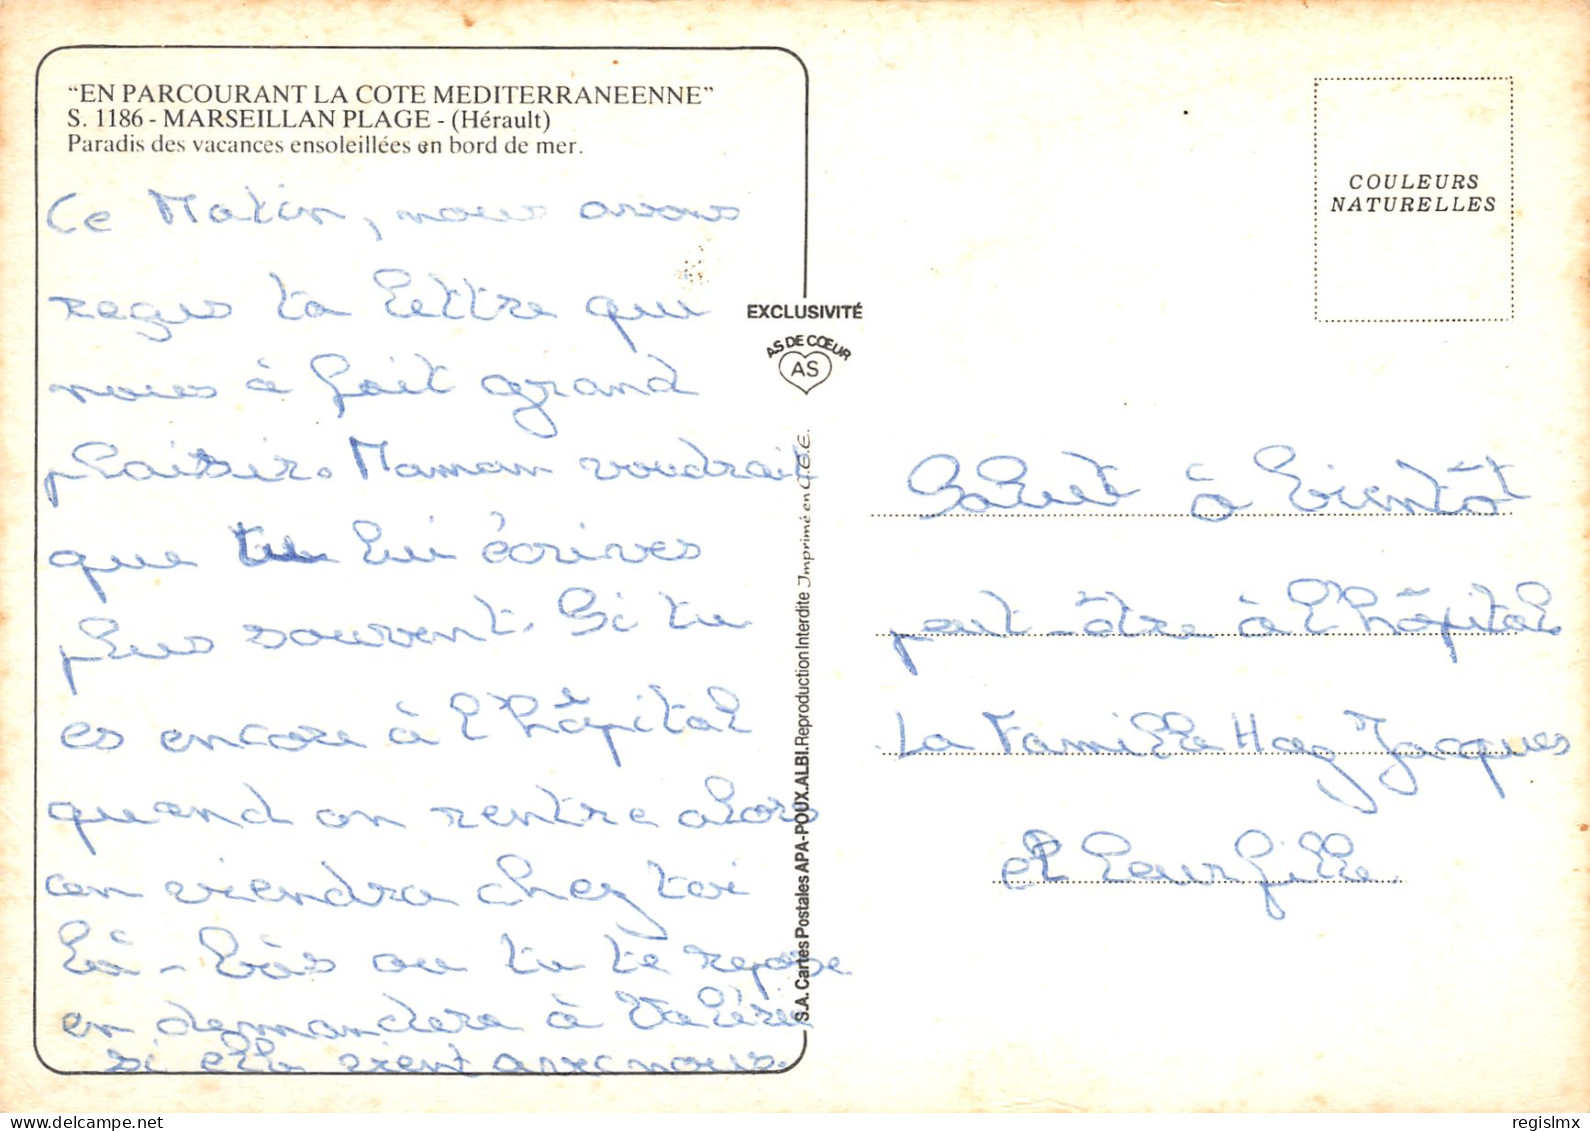 "EN PARCOURANT LA COTE MEDITERRANEENNE"
S. 1186 - MARSEILLAN PLAGE - (Hérault)
Paradis des vacances ensoleillées en bord de mer.
Ce Matin, nous avons
reçus ta lettre qui
nous à fait grand
plaisir. Maman voudrait
que tu lui écrives
plus souvent. Si tu
es encore à l'hôpital
quand on rentre alors
on viendra chez toi
là-bàs ou tu te repose
en demandera à Valérie
si elle vient avec nous.
EXCLUSIVITÉ
AS DE CŒUR
AS
S.A. Cartes Postales APA-POUX.ALBI. Reproduction Interdite Imprimé en C.E.E.
COULEURS
NATURELLES
Salut à bientôt
peut-être à l'hôpital
La Famille Hag Jacques
et leur fille
regislmx